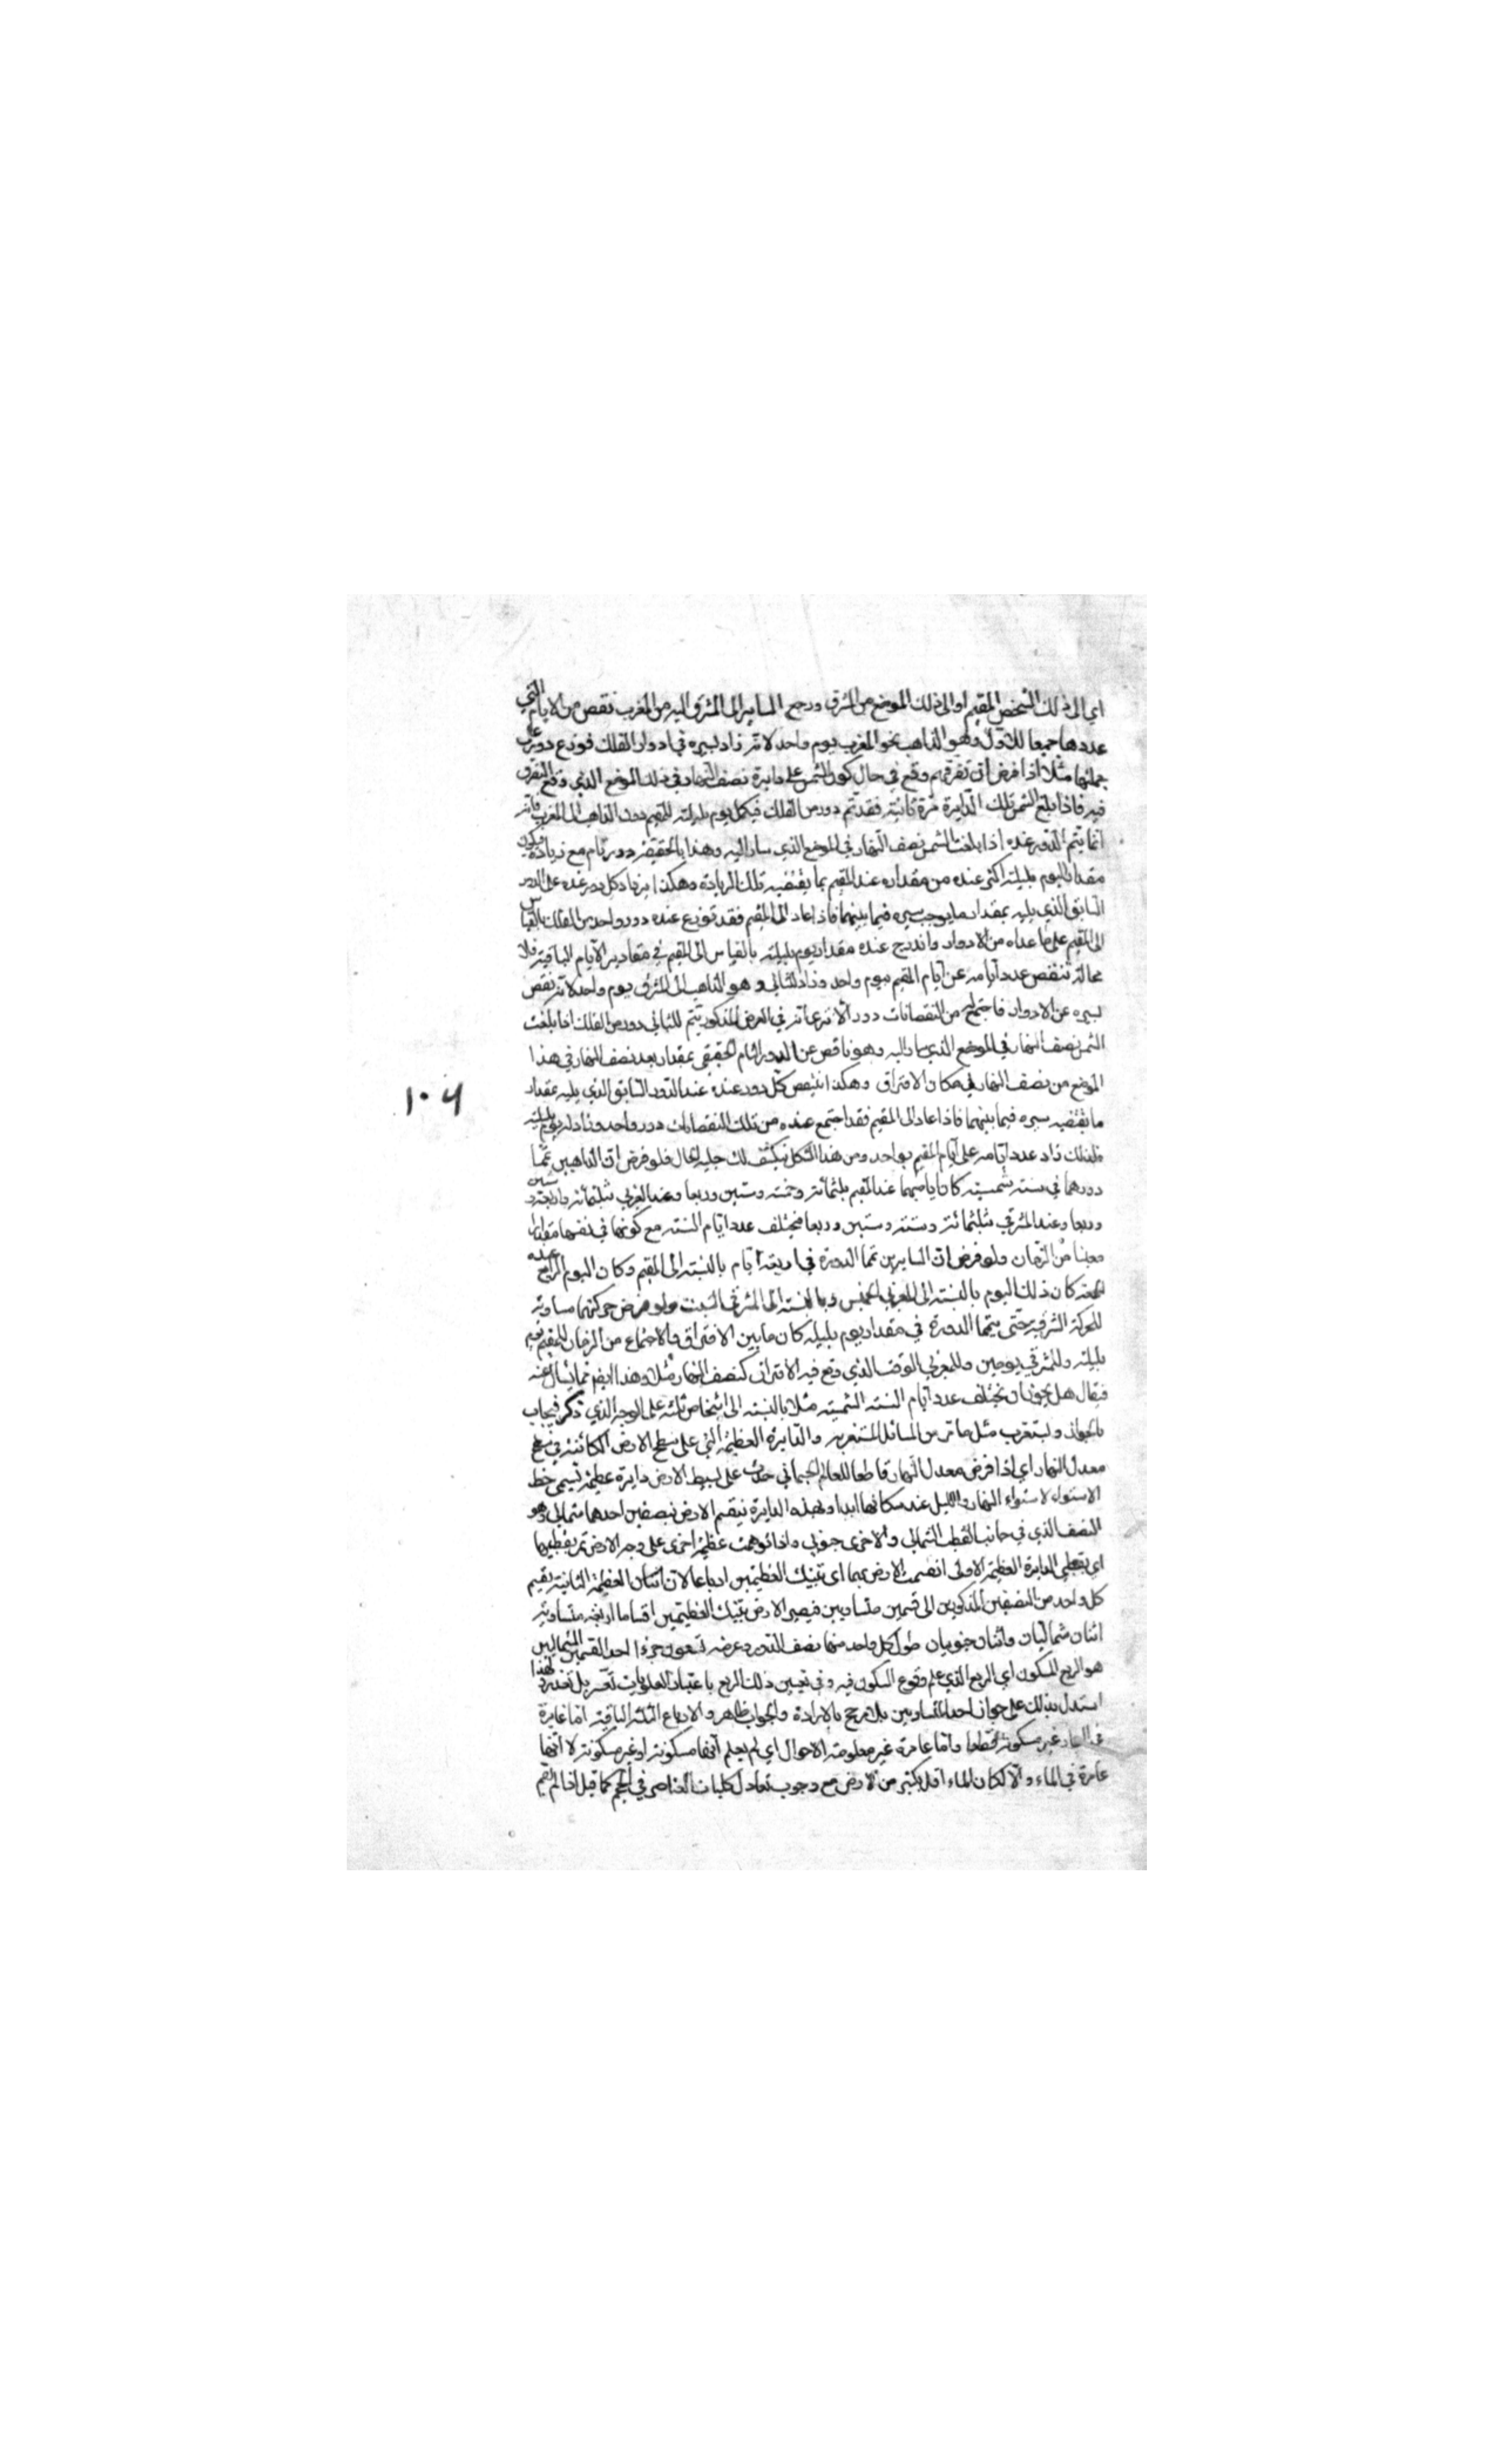 اي الى ذلك الشخص المقيم او الى ذلك الموضع من الشرق ورجع الساير الى المشرق اليه من المغرب نقص من الايام التي
عددها جميعا للاول وهو الذاهب نحو المغرب يوم واحد لانه زاد بسيره في ادوار الفلك فوزع دور على
جملتها مثلا اذا فرض ان تفرقهم وقع في حال كون الشمس على دايرة نصف النهار في ذلك الموضع الذي وقع التفرق
فيه فاذا بلغ الشمس تلك الدايرة مرة ثانية فقد تم دور من الفلك فيكمل يوم بليلته للمقيم دون الذاهب الى المغرب فانه
انما يتم الدور عنده اذا بلغت الشمس نصف النهار في الموضع الذي سار اليه وهذا بالحقيقة دور تام مع زيادة فيكون
مقدار اليوم بليلته اكثر عنده من مقداره عند المقيم بما يقتضيه تلك الزيادة وهكذا يزداد كل دور عنده على الدور
السابق الذي يليه بمقدار ما يوجب سيره فيما بينهما فاذا عاد الى المقيم فقد توزع عنده دور واحد من الفلك بالقياس
الى المقيم على ما عداه من الادوار واندرج عنده مقدار يوم بليلته بالقياس الى المقيم في مقادير الايام الباقية فلا
محالة تنقص عدد ايامه عن ايام المقيم بيوم واحد وزاد للثاني وهو الذاهب الى المشرق يوم واحد لانه نقص
بسيره عن الادوار فاجتمع له من النقصانات دور الا ترى انه في الفرض المذكور يتم للثاني دور من الفلك اذا بلغت
الشمس نصف النهار في الموضع الذي سار اليه وهو ناقص عن الدور التام الحقيقي بمقدار بعد نصف النهار في هذا
الموضع من نصف النهار في مكان الافتراق وهكذا انتقص كل دور عنده عند الدور السابق الذي يليه بمقدار
ما يقتضيه سيره فيما بينهما فاذا عاد الى المقيم فقد اجتمع عنده من تلك النقصانات دور واحد وزاد له يوم بليلته
فلذلك زاد عدد ايامه على ايام المقيم بواحد ومن هذا الشكل ينكشف لك جلية الحال فلو فرض ان الذاهبين تمما
دورهما في سنة شمسية كان ايامهما عند المقيم ثلثمائة وخمسة وستين وربعا وعند الغربي ثلثمائة واربعة وستين
وربعا وعند المشرقي ثلثمائة وستة وستين وربعا فيختلف عدد ايام السنة مع كونها في نفسها مقدارا
معينا من الزمان ولو فرض ان السايرين تمما الدورة في اربعة ايام بالنسبة الى المقيم وكان اليوم الرابع عنده
الجمعة كان ذلك اليوم بالنسبة الى المغربي الخميس وبالنسبة الى المشرقي السبت ولو فرض حركتهما مساوية
للحركة الشرقية حتى يتمما الدورة في مقدار يوم بليلة كان ما بين الافتراق والاجتماع من الزمان للمقيم يوم
بليلته وللمشرقي يومين وللمغربي الوقت الذي وقع فيه الافتراق كنصف النهار مثلا وهذا ايضا مما يسأل عنه
فيقال هل يجوز ان يختلف عدد ايام السنة الشمسية مثلا بالنسبة الى اشخاص ثلثة على الوجه الذي ذكر فيجاب
بالجواز ويستغرب مثل ما مر من المسائل المستغربة والدايرة العظيمة التي على سطح الارض الكائنة في سطح
معدل النهار اي اذا فرض معدل النهار قاطعا للعالم الجسماني حدث على بسيط الارض دايرة عظيمة تسمى خط
الاستواء لاستواء النهار والليل عند سكانها ابدا وبهذه الدايرة ينقسم الارض بنصفين احدهما شمالي وهو
النصف الذي في جانب القطب الشمالي والاخرى جنوبي واذا توهمت عظيمة اخرى على وجه الارض تمر بقطبيها
اي بقطبي الدايرة العظيمة الاولى انقسمت الارض بهما اي بتينك العظيمتين ارباعا لان العظيمة الثانية يقسم
كل واحد من النصفين المذكورين الى قسمين متساويين فيصير الارض بتينك العظيمتين اقساما اربعة متساوية
اثنان شماليان واثنان جنوبيان طول كل واحد منها نصف الدور وعرضه تسعون جزءا احد القسمين الشماليين
هو الربع المسكون اي الربع الذي علم وقوع السكون فيه وفي تعيين ذلك الربع باعتبار العلويات تعسر بل تعذر ولهذا
استدل بذلك على جواز احد المتساويين بلا مرجح بالارادة والجواب ظاهر والارباع الثلثة الباقية اما غايرة
في البحار غير مسكونة قطعا واما عامرة غير معلومة الاحوال اي لم يعلم انها مسكونة او غير مسكونة لا انها
غامرة في الماء والا لكان الماء اقل بكثير من الارض مع وجوب تعادل كليات العناصر في الحجم كما قيل اذ لم يقم
١٠٦